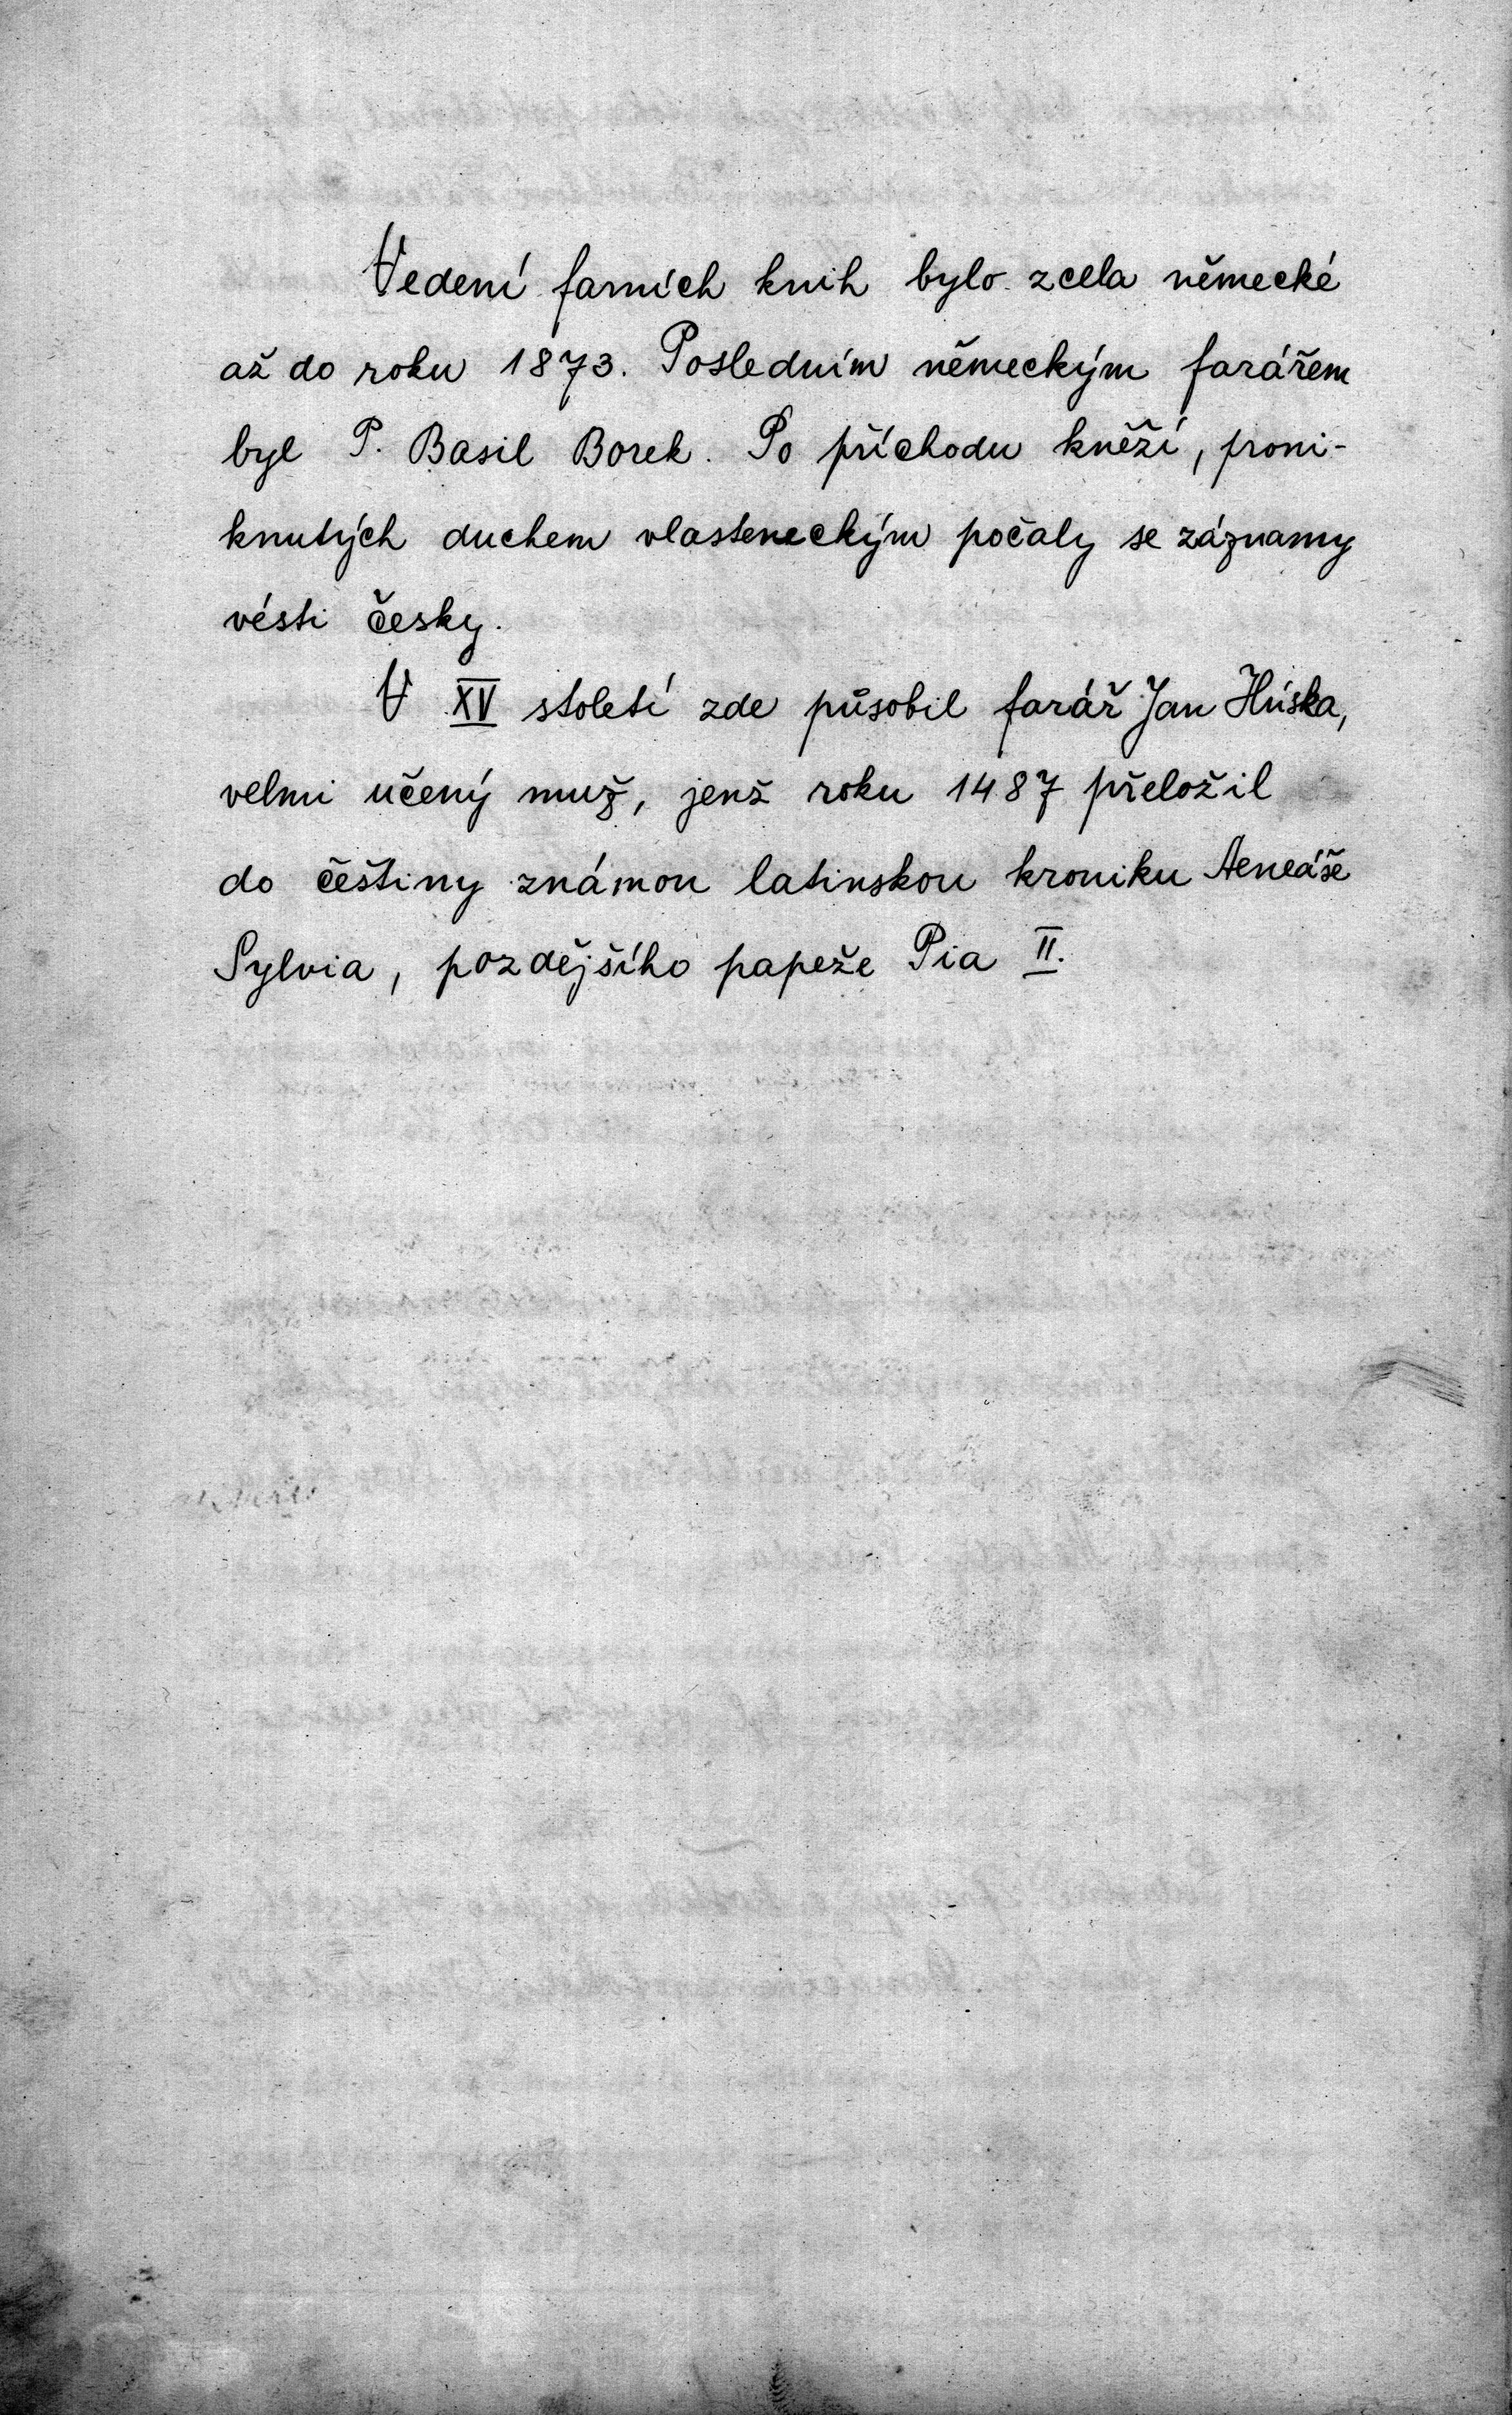 Vedení farních knih bylo zcela německé
až do roku 1873. Posledním německým farářem
byl P. Basil Borek. Po příchodu kněží, proni-
knutých duchem vlasteneckým počaly se záznamy
vésti česky.
V XV století zde působil farář Jan Húska,
velmi učený muž, jenž roku 1487 přeložil
do češtiny známou latinskou kroniku Aeneáše
Sylvia, pozdějšího papeže Pia II.